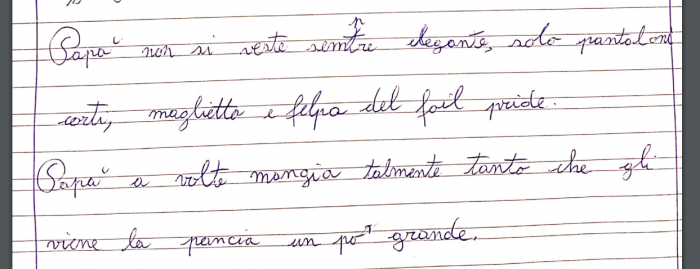 Papà non si veste sempre elegante, solo pantaloni
corti, maglietta e felpa del foil pride.
Papà a volte mangia talmente tanto che gli
viene la pancia un po' grande.